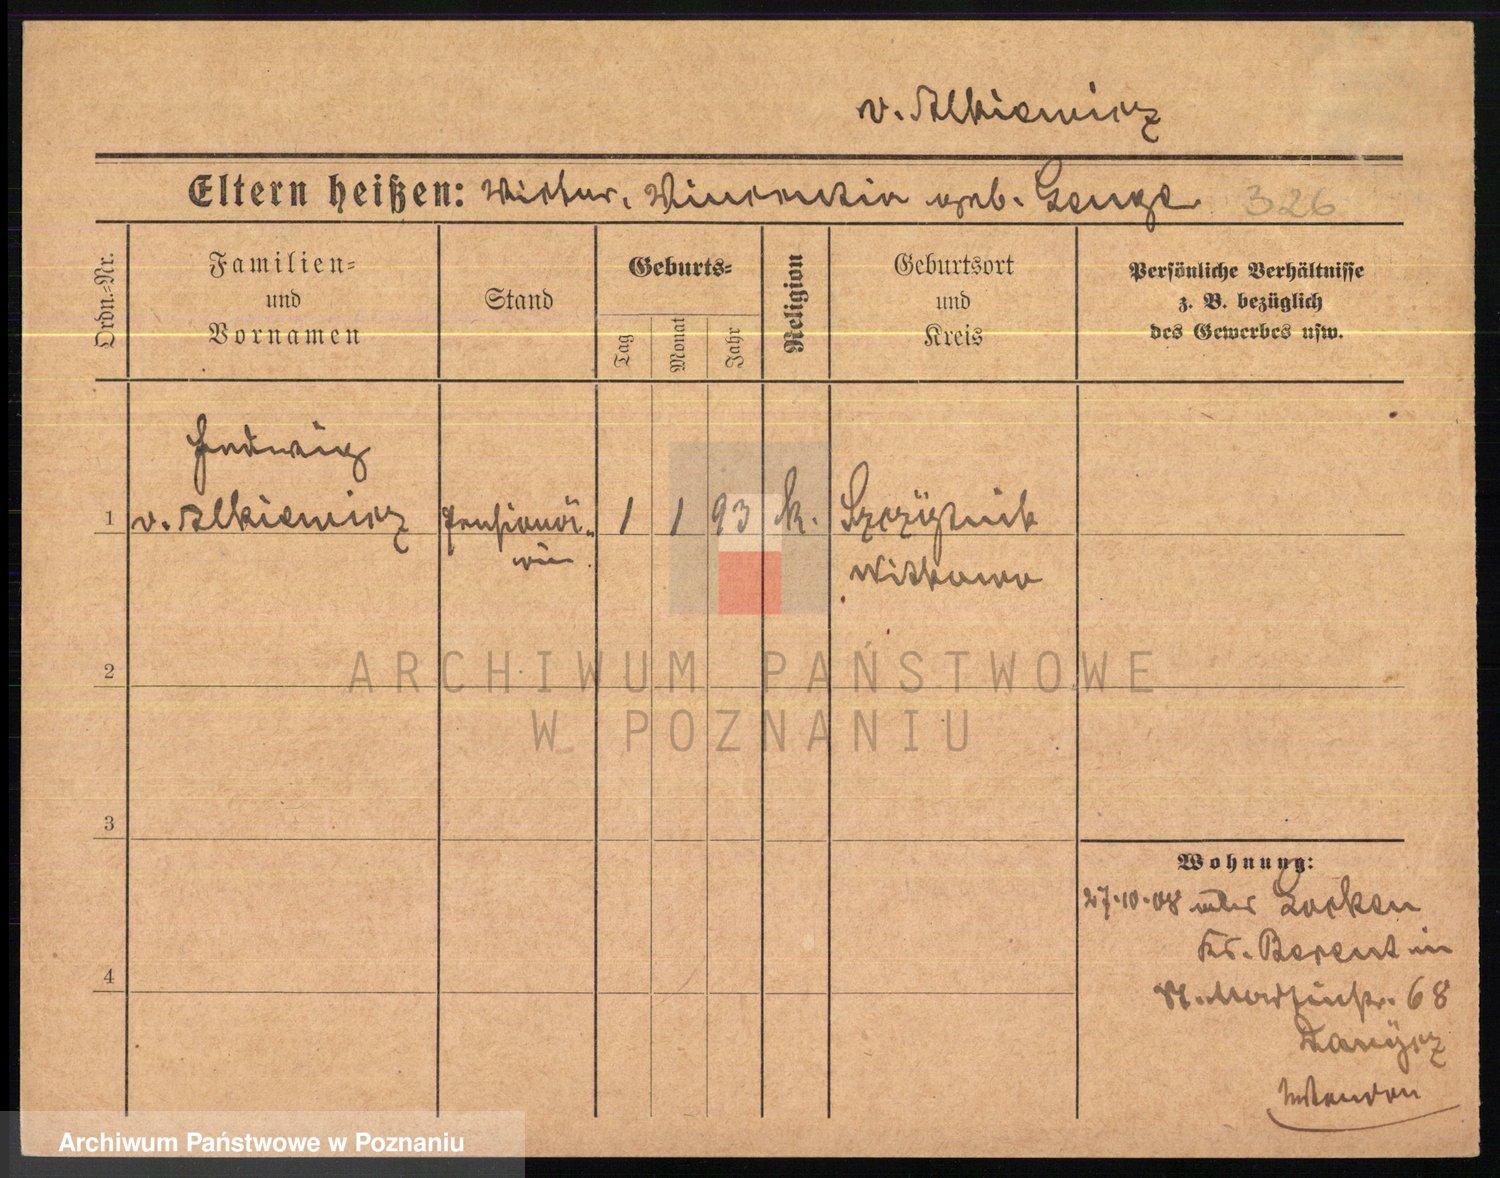 v. Alkiewicz
Eltern heißen: Victor, Vincentia geb. Genge 326
Ordn.-Nr.
Familien=
und
Vornamen
Stand
Geburts=
Tag
Monat
Jahr
Religion
Geburtsort
und
Kreis
Persönliche Verhältnisse
z. B. bezüglich
des Gewerbes usw.
Hedwig
1 v. Alkiewicz Pensionär= 1 1 93 k. Szczÿtnik
rin Witkowo
2
3
4
Wohnung:
27.10.08 Locken
Kr. Berent in
St. Martinstr. 68
ARCHIWUM PAŃSTWOWE
W POZNANIU
Archiwum Państwowe w Poznaniu